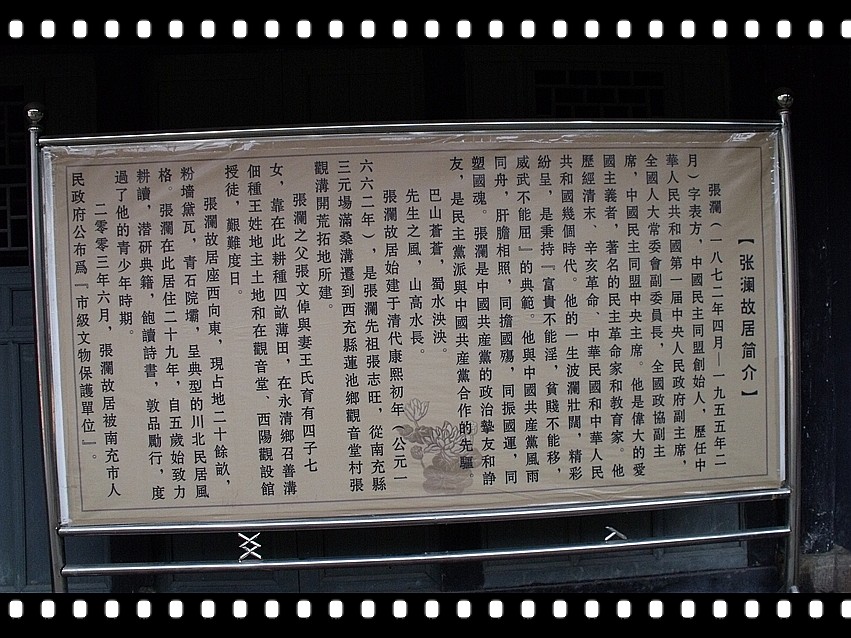 【张澜故居简介】
張瀾（一八七二年四月—一九五五年二
月）字表方，中國民主同盟創始人，歷任中
華人民共和國第一届中央人民政府副主席，
全國人大常委會副委員長，全國政協副主
席，中國民主同盟中央主席。他是偉大的愛
國主義者，著名的民主革命家和教育家。他
歷經清末、辛亥革命、中華民國和中華人民
共和國幾個時代。他的一生波瀾壯闊，精彩
紛呈，是秉持『富貴不能淫，貧賤不能移，
威武不能屈』的典範。他與中國共産黨風雨
同舟，肝膽相照，同擔國殤，同振國運，同
塑國魂。張瀾是中國共産黨的政治摯友和諍
友，是民主黨派與中國共産黨合作的先驅。
巴山蒼蒼，蜀水泱泱。
先生之風，山高水長。
張瀾故居始建于清代康熙初年（公元一
六六二年），是張瀾先祖張志旺，從南充縣
三元場滿桑溝遷到西充縣蓮池鄉觀音堂村張
觀溝開荒拓地所建。
張瀾之父張文倬與妻王氏育有四子七
女，靠在此耕種四畝薄田，在永清鄉召善溝
佃種王姓地主土地和在觀音堂、西陽觀設館
授徒，艱難度日。
張瀾故居座西向東，現占地二十餘畝，
粉墻黛瓦，青石院壩，呈典型的川北民居風
格。張瀾在此居住二十九年，自五歲始致力
耕讀，潜研典籍，飽讀詩書，敦品勵行，度
過了他的青少年時期。
二零零三年六月，張瀾故居被南充市人
民政府公布爲『市級文物保護單位』。